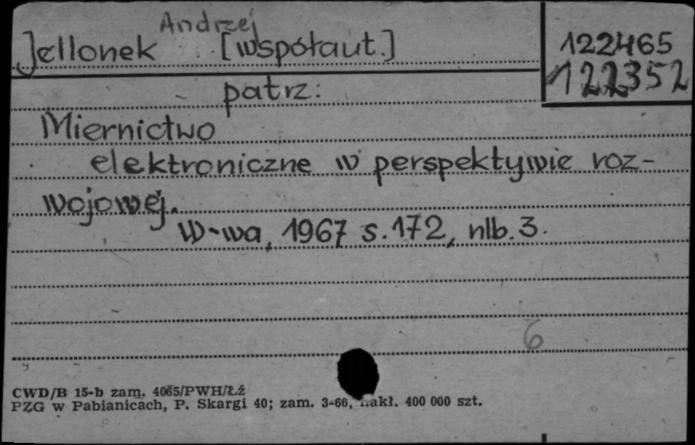 Andrzej
Jellonek [współaut.]
122465
122352
patrz:
Miernictwo
elektroniczne w perspektywie roz-
wojowej.
W-wa, 1967 s. 172, nlb. 3.
6
CWD/B 15-b zam. 4065/PWH/Łź
PZG w Pabianicach, P. Skargi 40; zam. 3-66, nakł. 400 000 szt.